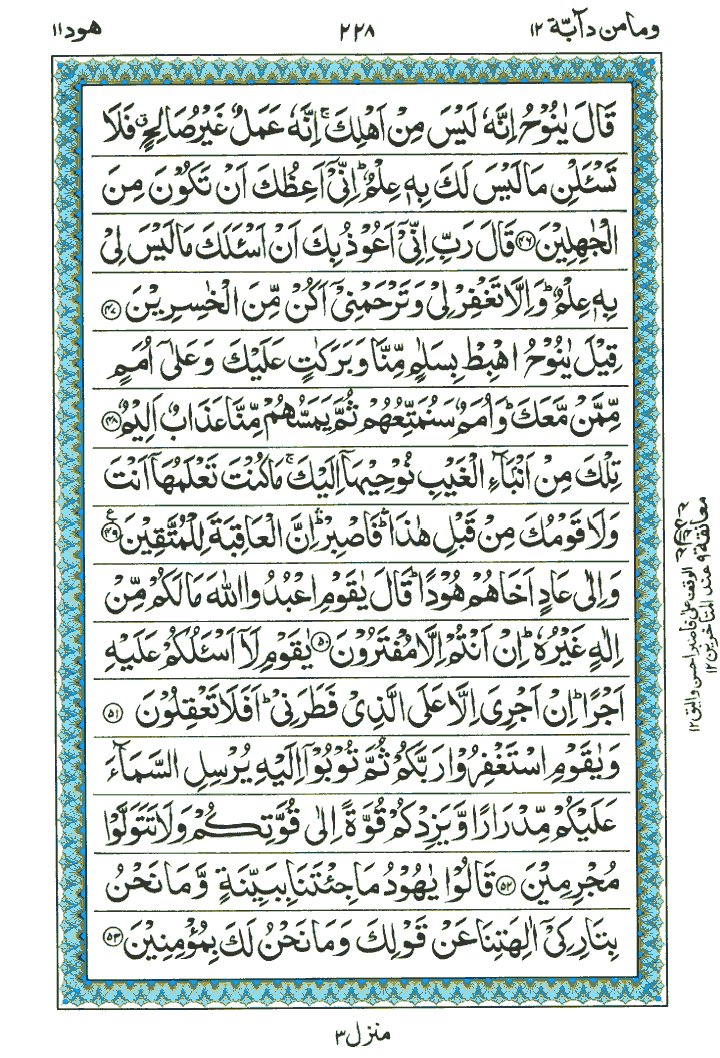 وما من دآبّة ١٢
٢٢٨
هود ١١
قَالَ يٰنُوْحُ اِنَّهٗ لَيْسَ مِنْ اَهْلِكَ ۚ اِنَّهٗ عَمَلٌ غَيْرُ صَالِحٍ ۖ فَلَا
تَسْـَٔلْنِ مَا لَيْسَ لَكَ بِهٖ عِلْمٌ ؕ اِنِّیْۤ اَعِظُكَ اَنْ تَكُوْنَ مِنَ
الْجٰهِلِيْنَ ﴿۴۶﴾ قَالَ رَبِّ اِنِّیْۤ اَعُوْذُ بِكَ اَنْ اَسْـَٔلَكَ مَا لَيْسَ لِیْ
بِهٖ عِلْمٌ ؕ وَاِلَّا تَغْفِرْ لِیْ وَتَرْحَمْنِیْۤ اَكُنْ مِّنَ الْخٰسِرِيْنَ ﴿۴۷﴾
قِيْلَ يٰنُوْحُ اهْبِطْ بِسَلٰمٍ مِّنَّا وَبَرَكٰتٍ عَلَيْكَ وَعَلٰۤی اُمَمٍ
مِّمَّنْ مَّعَكَ ؕ وَاُمَمٌ سَنُمَتِّعُهُمْ ثُمَّ يَمَسُّهُمْ مِّنَّا عَذَابٌ اَلِيْمٌ ﴿۴۸﴾
تِلْكَ مِنْ اَنْۢبَآءِ الْغَيْبِ نُوْحِيْهَاۤ اِلَيْكَ ۚ مَا كُنْتَ تَعْلَمُهَاۤ اَنْتَ
وَلَا قَوْمُكَ مِنْ قَبْلِ هٰذَا ۛؕ فَاصْبِرْ ۛؕ اِنَّ الْعَاقِبَةَ لِلْمُتَّقِيْنَ ﴿۴۹﴾ ع
وَاِلٰی عَادٍ اَخَاهُمْ هُوْدًا ؕ قَالَ يٰقَوْمِ اعْبُدُوا اللّٰهَ مَا لَكُمْ مِّنْ
اِلٰهٍ غَيْرُهٗ ؕ اِنْ اَنْتُمْ اِلَّا مُفْتَرُوْنَ ﴿۵۰﴾ يٰقَوْمِ لَاۤ اَسْـَٔلُكُمْ عَلَيْهِ
اَجْرًا ؕ اِنْ اَجْرِیَ اِلَّا عَلَی الَّذِیْ فَطَرَنِیْ ؕ اَفَلَا تَعْقِلُوْنَ ﴿۵۱﴾
وَيٰقَوْمِ اسْتَغْفِرُوْا رَبَّكُمْ ثُمَّ تُوْبُوْۤا اِلَيْهِ يُرْسِلِ السَّمَآءَ
عَلَيْكُمْ مِّدْرَارًا وَّيَزِدْكُمْ قُوَّةً اِلٰی قُوَّتِكُمْ وَلَا تَتَوَلَّوْا
مُجْرِمِيْنَ ﴿۵۲﴾ قَالُوْا يٰهُوْدُ مَا جِئْتَنَا بِبَيِّنَةٍ وَّمَا نَحْنُ
بِتَارِكِیْۤ اٰلِهَتِنَا عَنْ قَوْلِكَ وَمَا نَحْنُ لَكَ بِمُؤْمِنِيْنَ ﴿۵۳﴾
معانقة ٩ عند المتأخرين ١٢
الوقف على فاصبر احسن واليق ١٢
منزل ٣